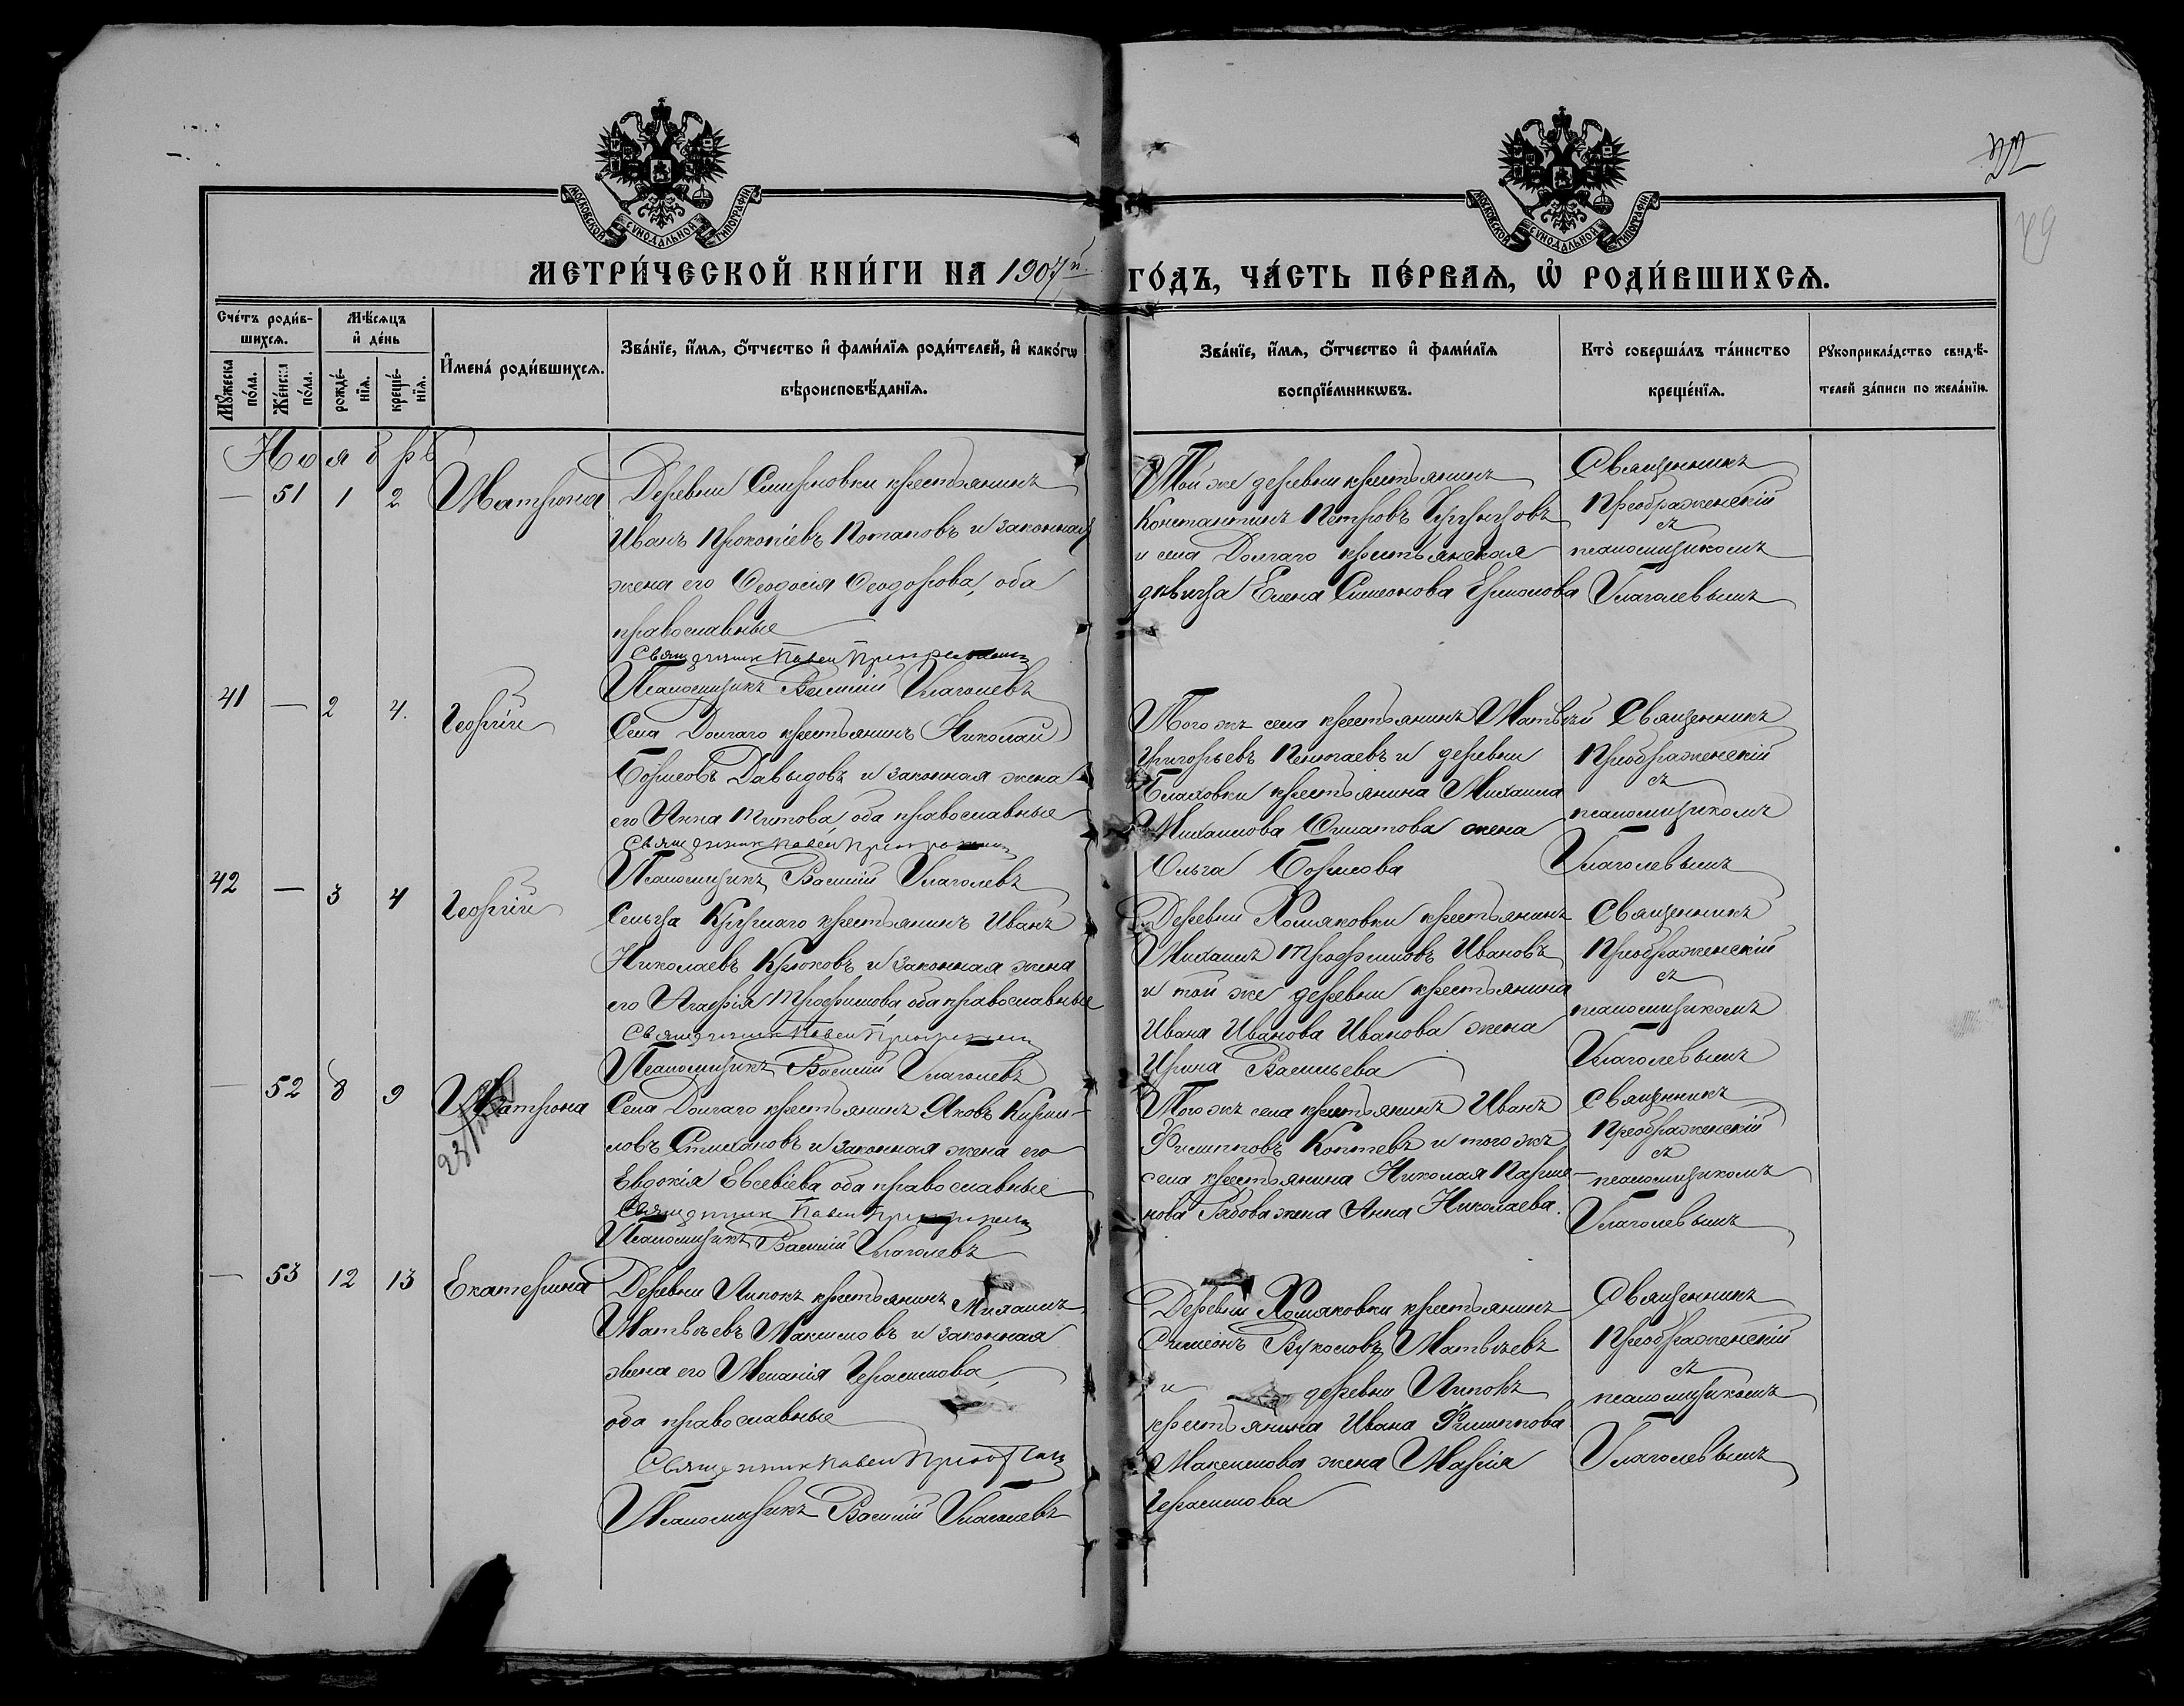 МОСКОВСКОЙ СѴНОДАЛЬНОЙ ТИПОГРАФІИ
МОСКОВСКОЙ СѴНОДАЛЬНОЙ ТИПОГРАФІИ
МЕТРИ́ЧЕСКОЙ КНИ́ГИ НА 1907й.
ГО́ДЪ, ЧА́СТЬ ПЕ́РВАѦ, Ѡ РОДИ́ВШИХСѦ.
Сче́тъ роди́в-
шихсѧ.
Мꙋжеска по́ла.
Же́нска по́ла.
Мѣ́сѧцъ
и҆ де́нь
рожде́-
нїѧ.
креще́-
нїѧ.
И҆мена̀ роди́вшихсѧ.
Зва́нїе, и҆́мѧ, ѻ҆́тчество и҆ фами́лїѧ роди́телей, и҆ како́гѡ
вѣроисповѣ́данїѧ.
Зва́нїе, и҆́мѧ, ѻ҆́тчество и҆ фами́лїѧ
воспрїе́мникѡвъ.
Кто̀ соверша́лъ та́инство
креще́нїѧ.
Рꙋкоприкла́дство свидѣ́-
телей за́писи по жела́нїю.
Ноябрь
— 51 1 2 Матрона
Деревни Смирновки крестьянинъ
Иванъ Прокопіевъ Потаповъ и законная
жена его Ѳеодосія Ѳеодорова, оба
православные
Священник Павел
Псаломщикъ Василій Глаголевъ
Той же деревни крестьянинъ
Константинъ Петровъ
и села Долгаго крестьянская
дѣвица Елена Симеонова Ермолова
Священникъ
Преображенскій
съ
псаломщикомъ
Глаголевымъ
41 — 2 4. Георгій
Села Долгаго крестьянинъ Николай
Борисовъ Давыдовъ и законная жена
его Анна Титова, оба православные
Священник Павел
Псаломщикъ Василій Глаголевъ
Того жъ села крестьянинъ Матвѣй
Григорьевъ Пенюгаевъ и деревни
крестьянина Михаила
Михаилова жена
Ольга Борисова
Священникъ
Преображенскій
съ
псаломщикомъ
Глаголевымъ
42 — 3 4 Георгій
Сельца крестьянинъ Иванъ
Николаевъ Крюковъ и законная жена
его Агафія Трофимова, оба православные
Священник Павел
Псаломщикъ Василій Глаголевъ
Деревни Хомяковки крестьянинъ
Михаилъ Трофимовъ Ивановъ
и той же деревни крестьянина
Ивана Иванова Иванова жена
Ирина Васильева
Священникъ
Преображенскій
съ
псаломщикомъ
Глаголевымъ
— 52 8 9 Матрона
Села Долгаго крестьянинъ Яковъ Кирил-
ловъ и законная жена его
Евдокія Евсевіева оба православные
Священник Павел
Псаломщикъ Василій Глаголевъ
Того жъ села крестьянинъ Иванъ
Филипповъ Коптевъ и того жъ
села крестьянина Николая Парме-
нова Рябова жена Анна Николаева.
Священникъ
Преображенскій
съ
псаломщикомъ
Глаголевымъ
— 53 12 13 Екатерина
Деревни Липокъ крестьянинъ Михаилъ
Матвѣевъ Максимовъ и законная
жена его Меланія Герасимова,
оба православные
Священник Павел
Псаломщикъ Василій Глаголевъ
Деревни Хомяковки крестьянинъ
Симеонъ Вуколовъ Матвѣевъ
и деревни Липокъ
крестьянина Ивана Филиппова
Максимова жена Марія
Герасимова
Священникъ
Преображенскій
съ
псаломщикомъ
Глаголевымъ